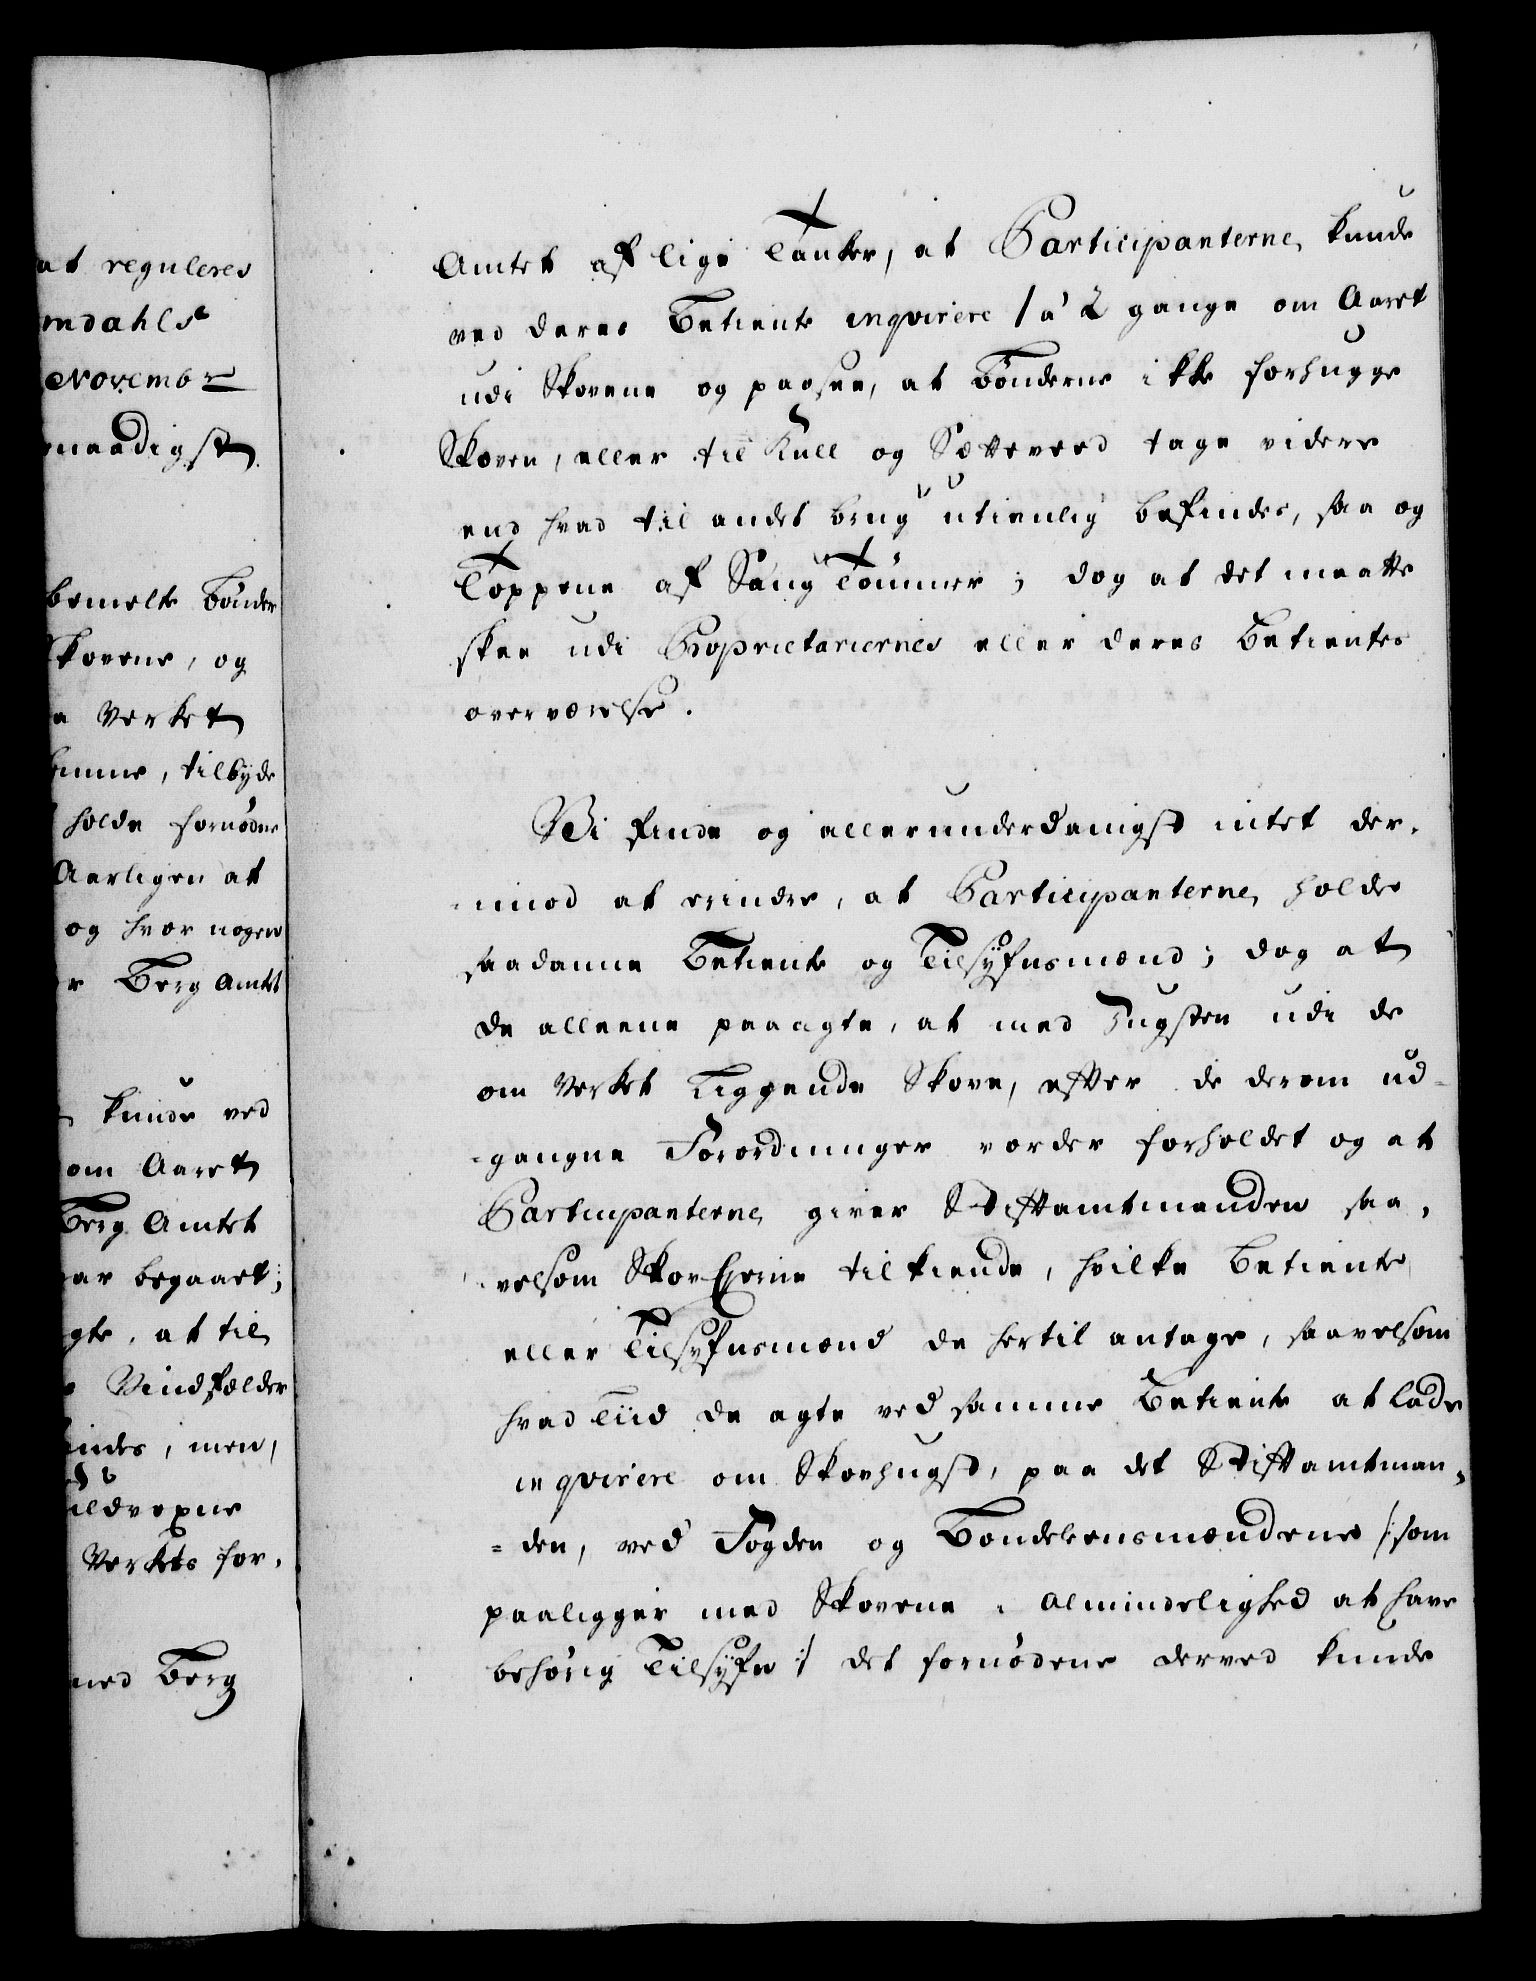 at reguleres
mdahls
Novembr
naadigst
bemelte Bönder
kovene, og
a Verket
emme, tilbyde
holde fornödne
Aarligen at
og hvor nogen
r Berg Amtet
kunde ved
om Aaret
Berg Amtet
ar begaaet;
gte, at til
Vindfælder
indes, men,
ildvoxne
Verkets for,
med Berg
Amtet af lige Tanker, at Participanterne kunde
ved deres Betiente inqvirere 1 à 2 gange om Aaret
udi Skovene og paasee, at Bönderne ikke forhugge
Skoven, eller til Kull og Sætteveed tage videre
end hvad til andet brug utienlig befindes, saa og
Toppene af Saug Tömmer; dog at det maatte
skee udi Proprietariernes eller deres Betientes
overværelse.
Vi finde og allerunderdanigst intet der,
imod at erindre, at Participanterne holder
saadanne Betiente og Tilsÿfnsmænd; dog at
de alleene paaagte, at med Hugsten udi de
om Verket Liggende Skove, efter de derom ud-
-gangne Forordninger vorder forholdet og at
Participanterne giver Stiftamtmanden saa,
velsom Skov Ejerne tilkiende, hvilke Betiente
eller Tilsyfnsmænd de hertil antage, saavelsom
hvad Tiid de agte ved samme Betiente at lade
inqvirere om Skovhugst, paa det Stiftamtman=
=den, ved Fogden og Bondelensmændene /: som
paaligger med Skovene i Almindelighed at have
behörig Tilsÿfn :/ det fornödene derved kunde